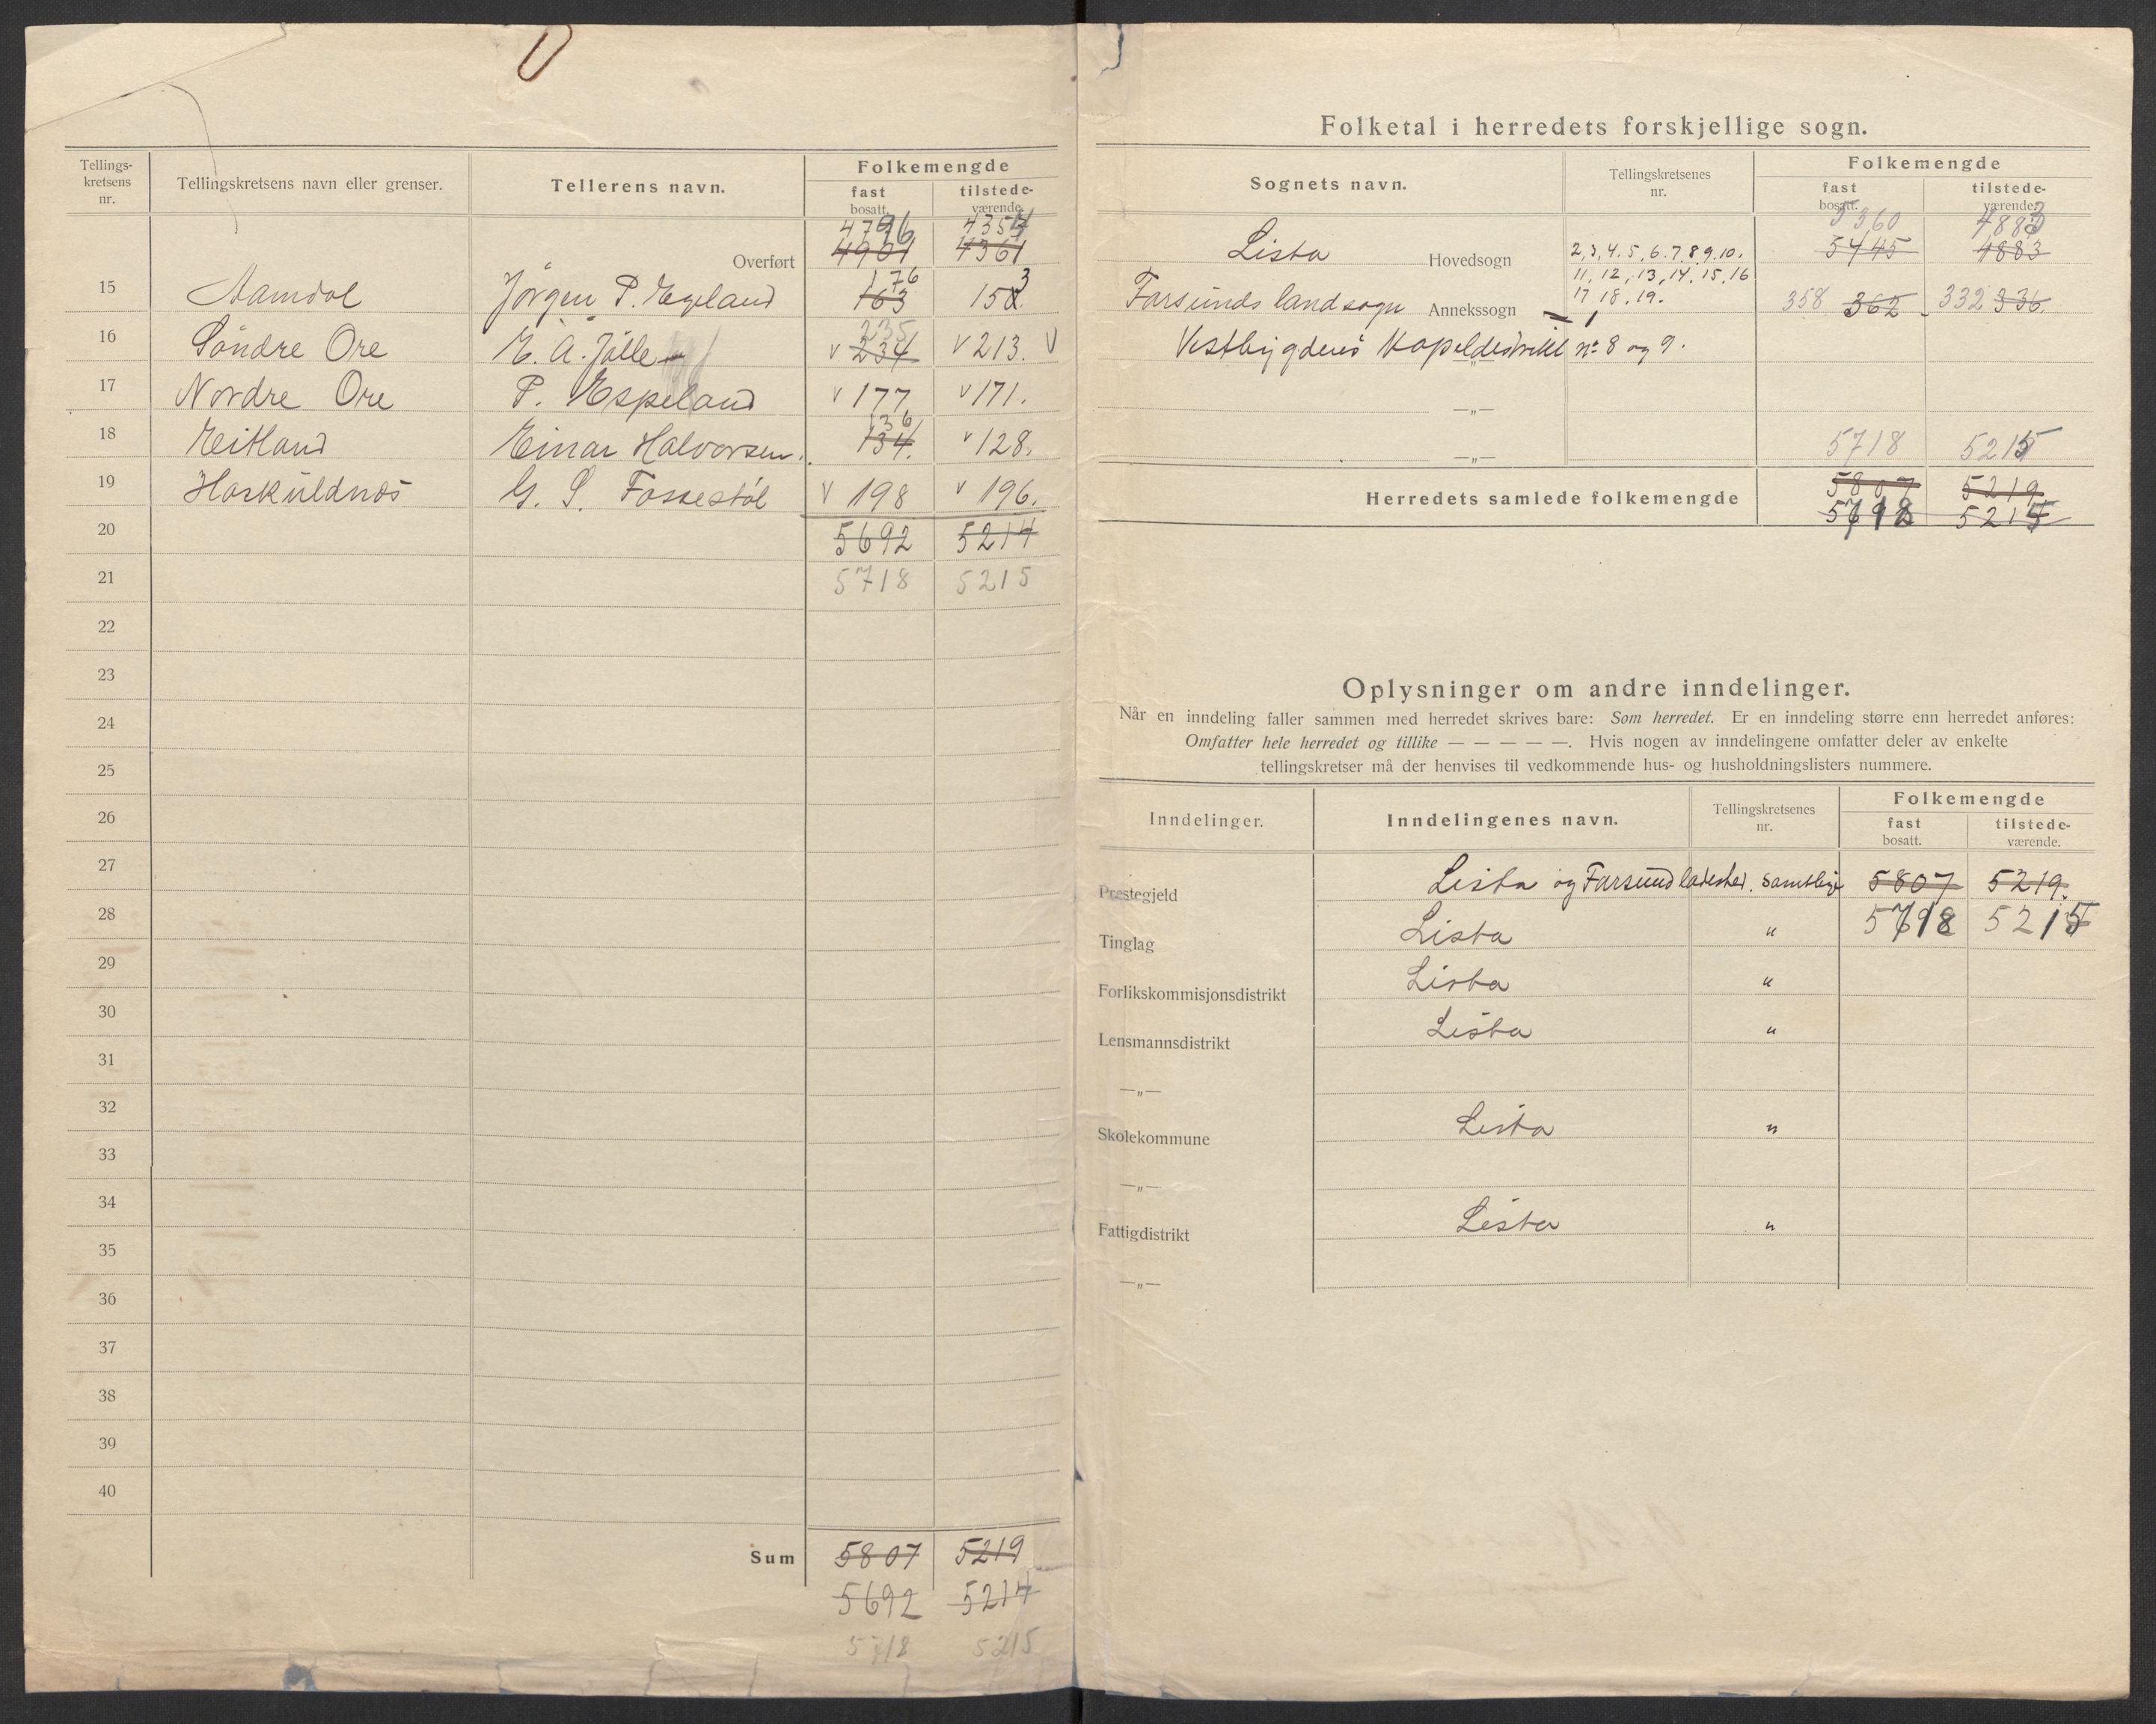 Tellings-
kretsens
nr.
Tellingskretsens navn eller grenser.
Tellerens navn.
Folkemengde
fast
bosatt.
tilstede-
værende.
4796 4354
Overført 4901 4361
176 3
15 Aamdal Jörgen P. Egeland 163 158
235
16 Söndre Ore E. A. Jölle v 234 v 213. v
17 Nordre Ore P. Espeland v 177 v 171.
136
18 Eitland Einar Halvorsen. 134. v 128.
19 Haskuldnes G. S. Fossestöl v 198 v 196.
20 5692 5214
21 5718 5215
22
23
24
25
26
27
28
29
30
31
32
33
34
35
36
37
38
39
40
Sum 5807 5219
5692 5214
5718 5215
Folketal i herredets forskjellige sogn.
Sognets navn.
Tellingskretsenes
nr.
Folkemengde
fast
bosatt.
tilstede-
værende.
5360 4883
Lista Hovedsogn 2,3,4.5,6.7.8,9.10. 5445 4883
11, 12, 13, 14. 15, 16
17 18. 19.
Farsunds landsogn Annekssogn 1 358 362 332 336.
Vestbygdens Kapeldistrikt nr. 8 og 9.
—„—
—„—
—„— 5718 5215
Herredets samlede folkemengde 5807 5219
5718 5215
Oplysninger om andre inndelinger.
Når en inndeling faller sammen med herredet skrives bare: Som herredet. Er en inndeling større enn herredet anføres:
Omfatter hele herredet og tillike — — — — —. Hvis nogen av inndelingene omfatter deler av enkelte
tellingskretser må der henvises til vedkommende hus- og husholdningslisters nummere.
Inndelinger.
Inndelingenes navn.
Tellingskretsenes
nr.
Folkemengde
fast
bosatt.
tilstede-
værende.
Prestegjeld Lista og Farsund ladested. samtlige 5807 5219.
Tinglag Lista „ 5718 5215
Forlikskommisjonsdistrikt Lista „
Lensmannsdistrikt Lista „
—„—
Skolekommune Lista „
—„—
Fattigdistrikt Lista „
—„—